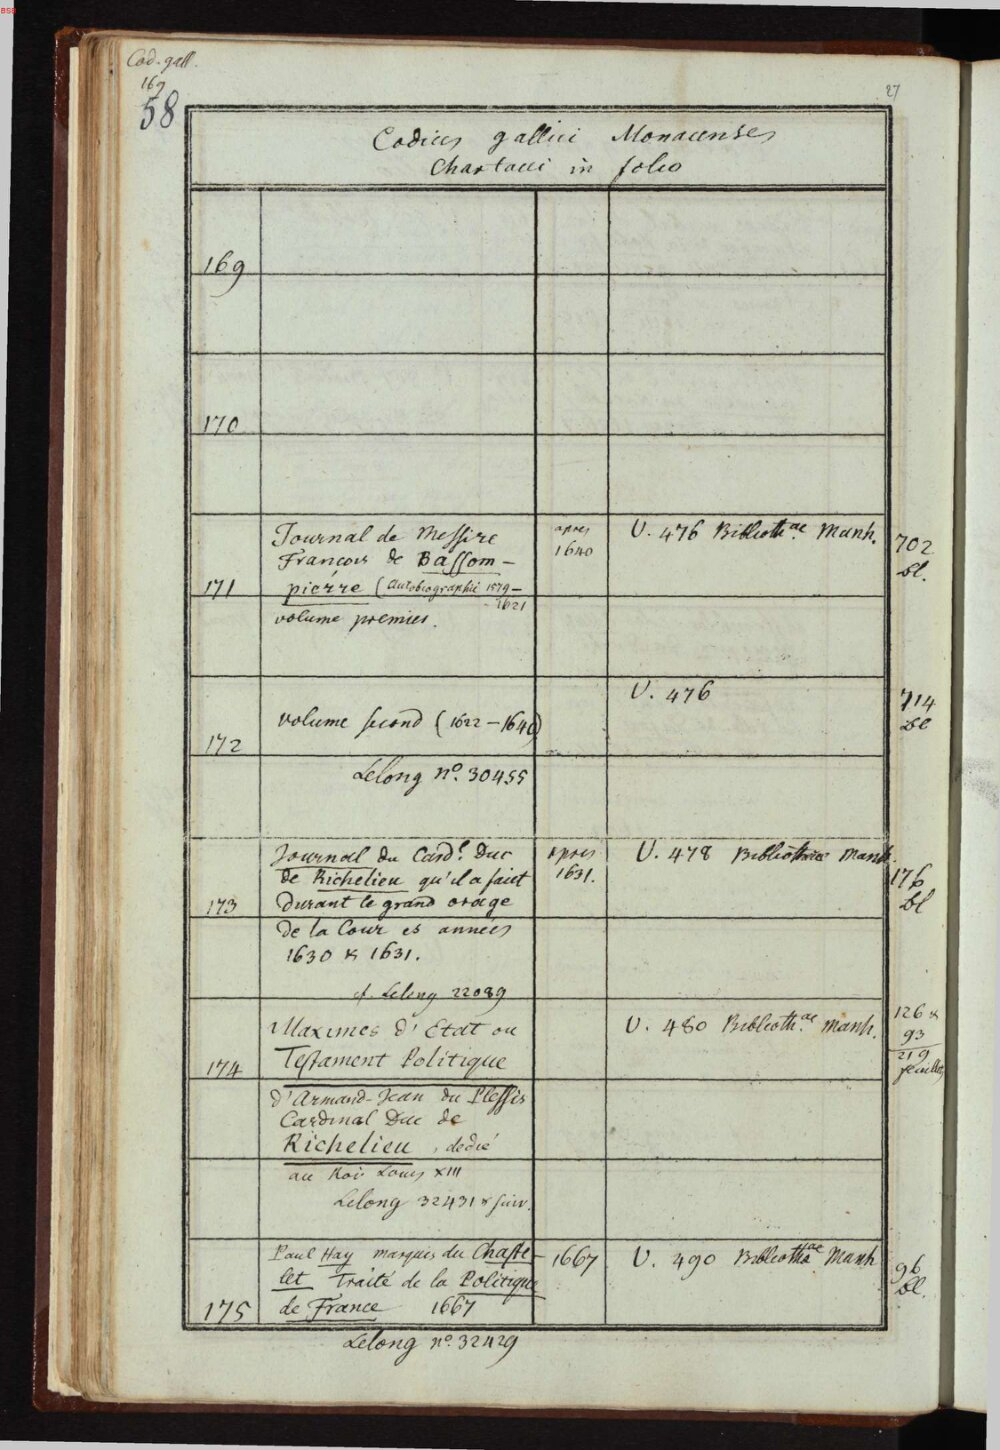 BSB
Cod. gall.
169
58
27
Codices gallici Monacenses
Chartacei in folio
169
170
Journal de Messire
François de Bassom-
171 pierre (Autobiographie 1579-
1621
volume premier.
après
1640
U. 476 Biblioth.ae Manh.
702
bl.
volume second (1622-1640)
172
U. 476
714
bl
Lelong nº. 30455
Journal du Card.l Duc
de Richelieu qu'il a faict
173 Durant le grand orage
de la Cour es années
1630 & 1631.
cf. Lelong 22089
après
1631.
U. 478 Bibliothecae Manh.
176
bl
Maximes d'Etat ou
174 Testament Politique
d'Armand-Jean du Plessis
Cardinal Duc de
Richelieu, dedié
au Roi Louis XIII
Lelong 32431 & suiv.
U. 480 Biblioth.ae Manh.
126 &
93
219
feuilles
Paul Hay marquis du Chaste-
let Traité de la Politique
175 de France 1667
1667
U. 490 Biblioth.ae Manh
96
bl.
Lelong nº 32429